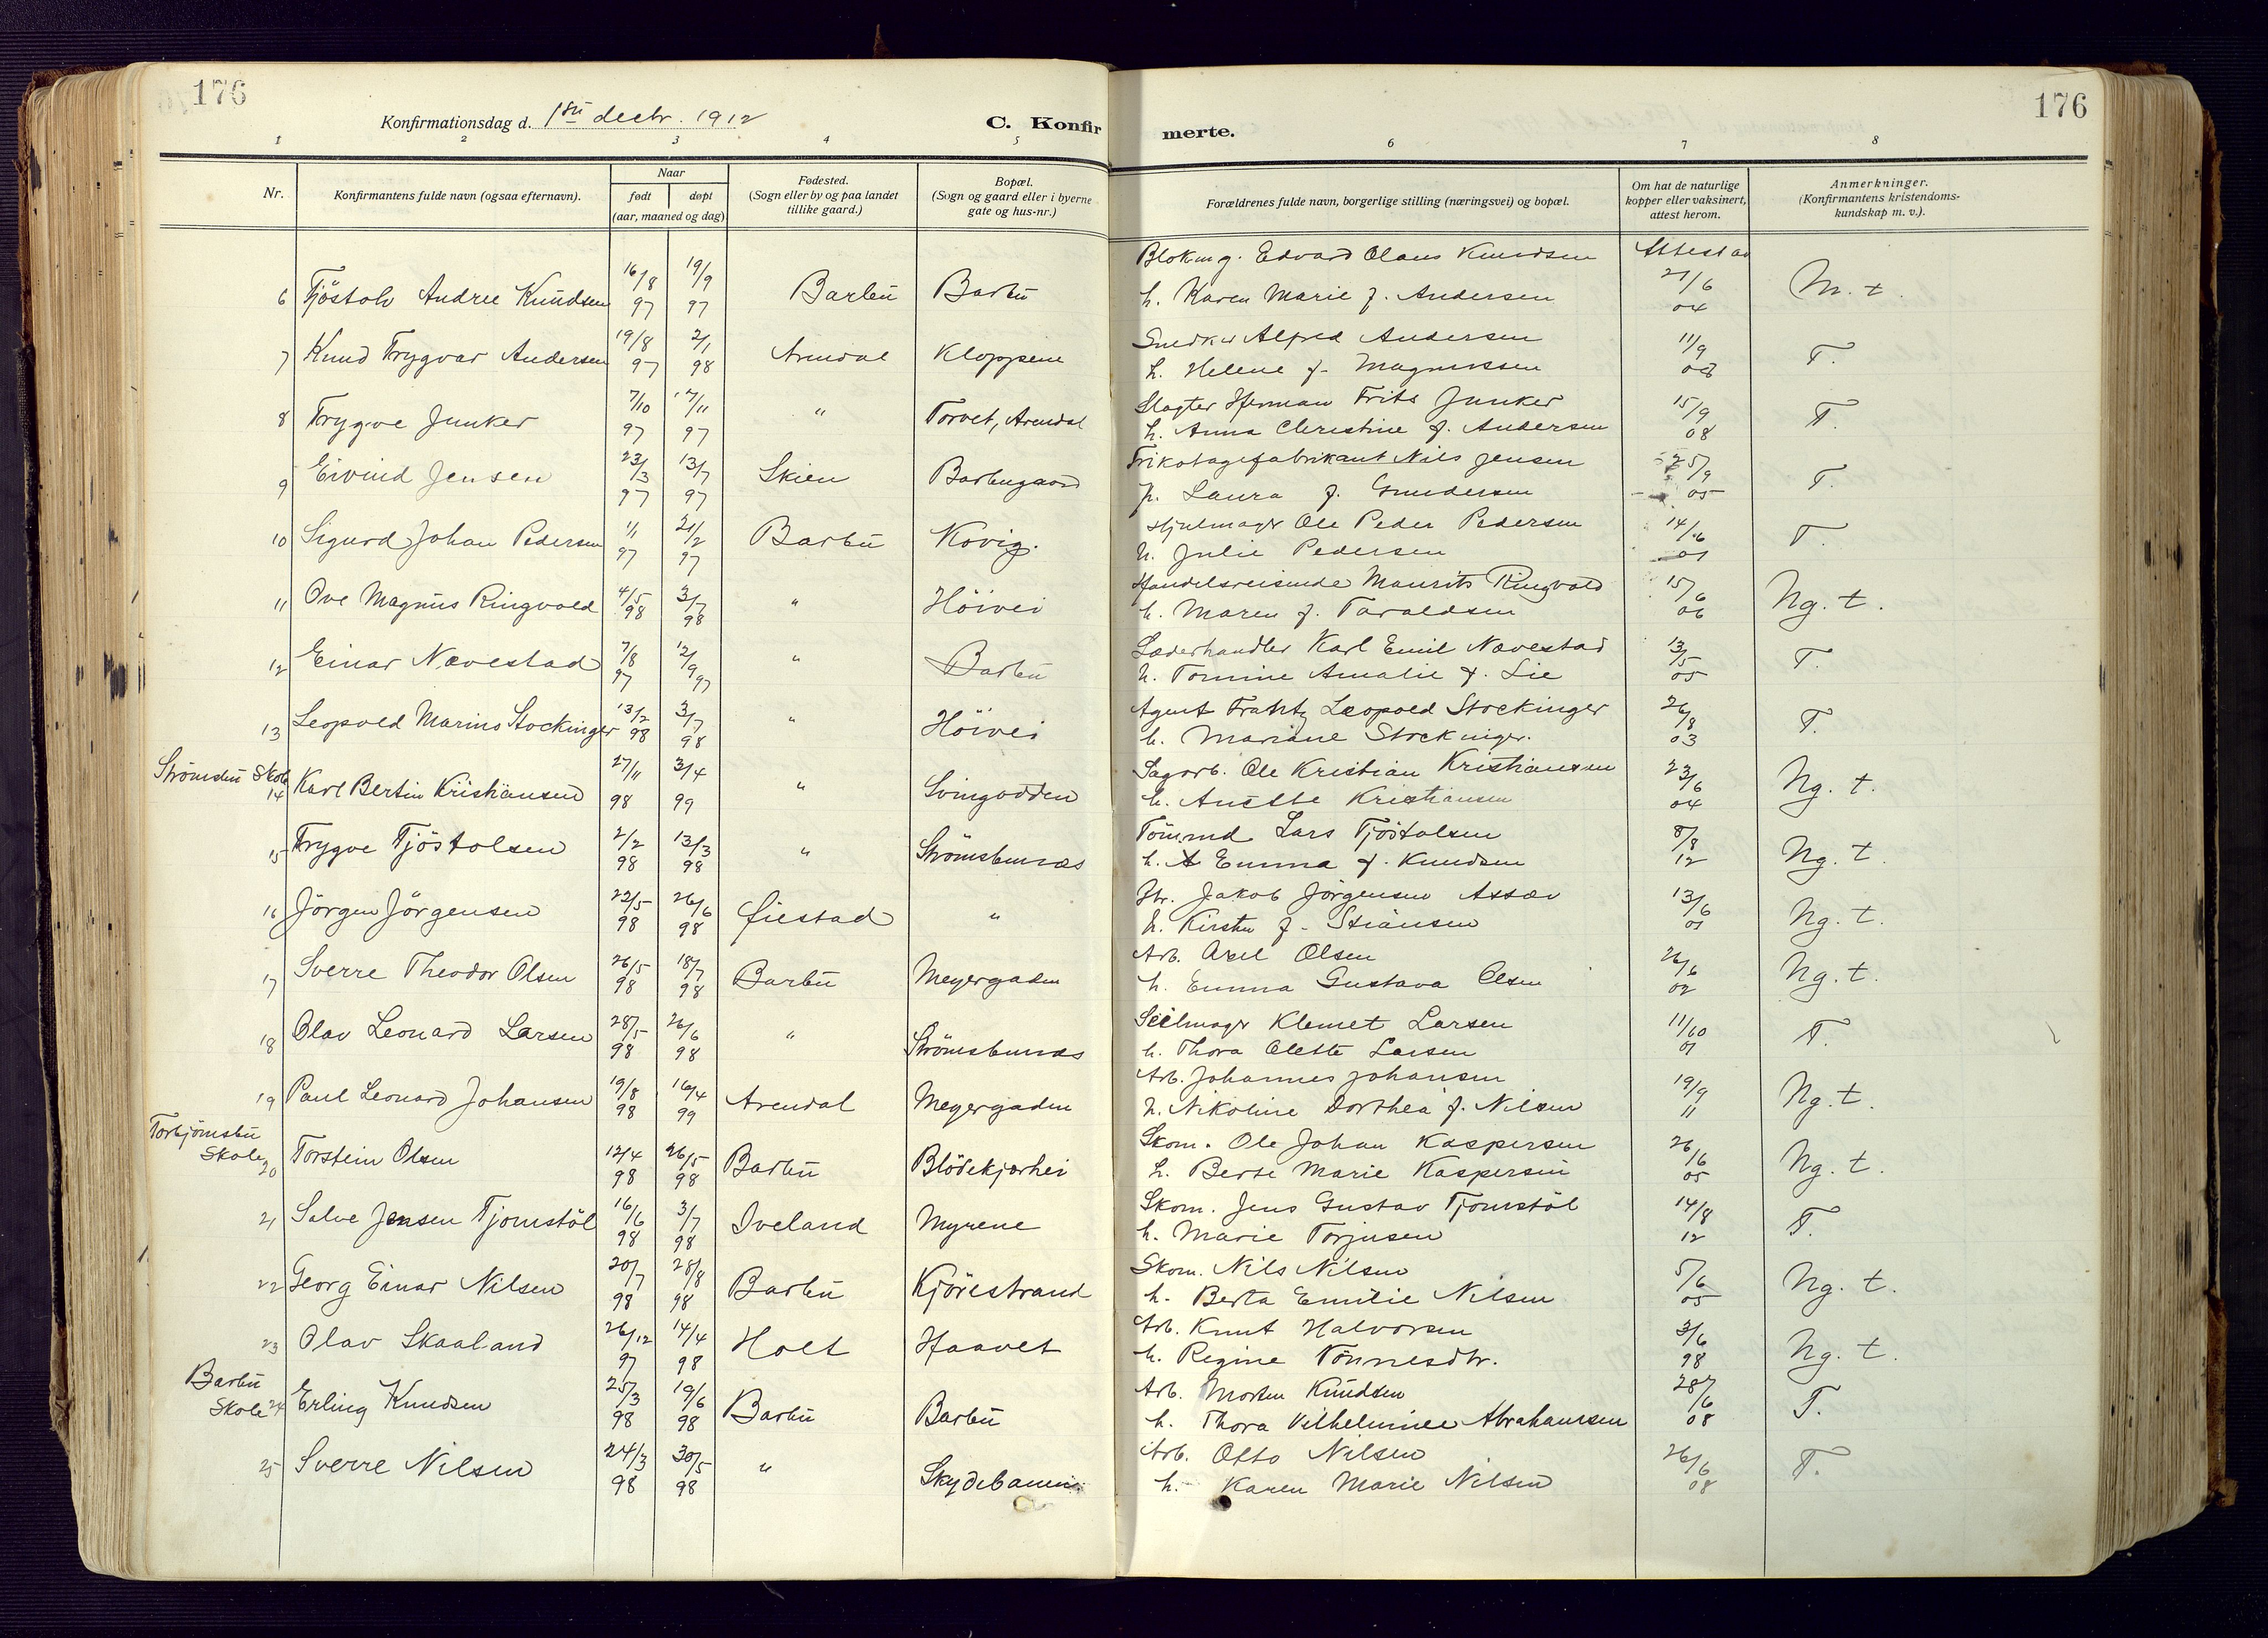 176
176
Konfirmationsdag d. 1ste decbr. 1912
C. Konfir
merte.
1 2 3 4 5 6 7 8
Nr.
Konfirmantens fulde navn (ogsaa efternavn).
Naar
født døpt
(aar, maaned og dag)
Fødested.
(Sogn eller by og paa landet
tillike gaard.)
Bopæl.
(Sogn og gaard eller i byerne
gate og hus-nr.)
Forældrenes fulde navn, borgerlige stilling (næringsvei) og bopæl.
Om hat de naturlige
kopper eller vaksinert,
attest herom.
Anmerkninger.
(Konfirmantens kristendoms-
kundskap m. v.).
Blokmg. Edvard Olaus Knudsen Attest av
6 Tjöstolv Andree Knudsen 16/8 97 19/9 97 Barbu Barbu h. Karen Marie f. Andersen 21/6 04 M. t.
Snedker Alfred Andersen
7 Knud Trygvar Andersen 19/8 97 2/1 98 Arendal Kloppene h. Helene f. Magnussen 11/9 08 T.
Slagter Herman Frits Junker
8 Trygve Junker 7/10 97 17/11 97 " Torvet, Arendal h. Anna Christine f. Andersen 15/9 08 T.
Trikotagefabrikant Nils Jensen
9 Eivind Jensen 23/3 97 13/7 97 Skien Barbugaard h. Laura f. Gundersen 25/9 05 T.
Hjulmager Ole Peder Pedersen
10 Sigurd Johan Pedersen 1/1 97 21/2 97 Barbu Kovig. h. Julie Pedersen 14/6 01 T.
Handelsreisende Maurits Ringvold
11 Ove Magnus Ringvold 4/5 98 3/7 98 " Höivei h. Maren f. Taraldsen 15/6 06 Ng. t.
Læderhandler Karl Emil Nævestad
12 Einar Nævestad 7/8 97 12/9 97 " Barbu h. Tomine Amalie f. Lie 13/5 05 T.
Agent Frantz Leopold Stockinger
13 Leopold Marino Stockinger 13/2 98 3/7 98 " Höivei h. Mariane Stockinger. 26/8 03 T.
Strömsbu Skole
Sagarb. Ole Kristian Kristiansen
14 Karl Bertin Kristiansen 27/11 98 3/4 99 " Svingodden h. Anette Kristiansen 23/6 04 Ng. t.
Tömmd Lars Tjöstolsen
15 Trygve Tjöstolsen 2/2 98 13/3 98 " Strömsbunæs h. Emma f. Knudsen 8/8 12 Ng. t.
Jakob Jörgensen Assæv
16 Jörgen Jörgensen 22/5 98 26/6 98 Öiestad " h. Kirsten f. Stiansen 13/6 01 Ng. t.
Arb. Axel Olsen
17 Sverre Theodor Olsen 26/5 98 18/7 98 Barbu Meyergaden h. Emma Gustava Olsen 26/6 02 Ng. t.
Seilmager Klemet Larsen
18 Olav Leonard Larsen 28/5 98 26/6 98 " Strömsbunæs h. Thora Olette Larsen 11/10 01 T.
Arb. Johannes Johansen
19 Paul Leonard Johansen 19/8 98 16/4 99 Arendal Meyergaden h. Nikoline Dorthea f. Nilsen 19/9 11 Ng. t.
Torbjörnsbu
Skole
Skom. Ole Johan Kaspersen
20 Torstein Olsen 12/4 98 26/5 98 Barbu Blödekjærhei h. Berte Marie Kaspersen 26/6 05 Ng. t.
Skom. Jens Gustav Tjomstöl
21 Salve Jensen Tjomstöl 16/6 98 3/7 98 Iveland Myrene h. Marie Torjusen 14/8 12 T.
Skom. Nils Nilsen
22 Georg Einar Nilsen 20/7 98 28/8 98 Barbu Kjörestrand h. Berta Emilie Nilsen 5/6 05 Ng. t.
Arb. Knut Halvorsen
23 Olav Skaaland 26/12 97 14/4 98 Holt Haavet h. Regine Tönnesdtr. 3/6 98 Ng. t.
Barbu
Skole
Arb. Morten Knudsen
24 Erling Knudsen 25/3 98 19/6 98 Barbu Barbu h. Thora Vilhelmine Abrahamsen 28/6 08 T.
Arb. Otto Nilsen
25 Sverre Nilsen 24/3 98 30/5 98 " Skydebanen h. Karen Marie Nilsen 26/6 08 T.